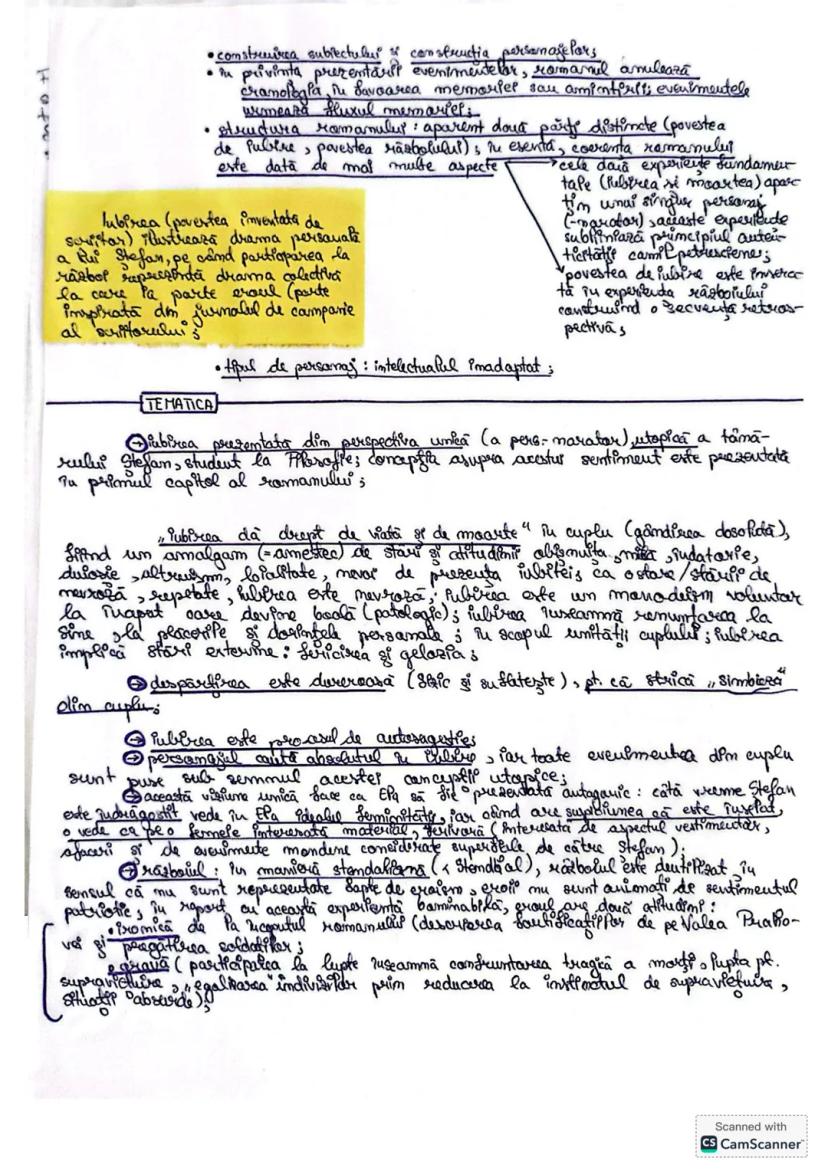 • construirea subiectului și construcția personajelor;
• în privința prezentării evenimentelor, romanul anulează
cronologia, în favoarea memoriei sau amintirii; evenimentele
urmează fluxul memoriei;
• structura romanului: aparent două părți distincte (povestea
de iubire, povestea războiului); în esență, coerența romanului
este dată de mai multe aspecte
cele două experiențe fundamen-
tale (iubirea și moartea) apar-
țin unui singur personaj
(-narator), aceste experiențe
subliniază principiul auten-
ticității camilpetresciene;
povestea de iubire este insera-
tă în experiența războiului
construind o secvență retros-
pectivă;
Iubirea (povestea inventată de
scriitor) ilustrează drama personală
a lui Ștefan, pe când participarea la
război reprezintă drama colectivă
la care ia parte eroul (parte
inspirată din jurnalul de campanie
al scriitorului;
• tipul de personaj: intelectualul inadaptat;
TEMATICA
→ iubirea prezentată din perspectiva unică (a pers.-narator), utopică a tână-
rului Ștefan, student la Filosofie; concepția asupra acestui sentiment este prezentată
în primul capitol al romanului;
„iubirea dă drept de viață și de moarte" în cuplu (gândirea absolută),
fiind un amalgam (=amestec) de stări și atitudini obișnuită, milă, îndatorie,
duioșie, altruism, loialitate, nevoi de prezența iubitei; ca o stare/stării de
nevroză, repetate, iubirea este nevroză; iubirea este un monodeism voluntar
la început care devine boală (patologic); iubirea înseamnă renunțarea la
sine, la plăcerile și dorințele personale; în scopul unității cuplului; iubirea
implică stări extreme: fericirea și gelozia;
→ despărțirea este dureroasă (fizic și sufletește), pt. că strică „simbioza"
din cuplu;
→ iubirea este procesul de autosugestie;
→ personajul caută absolutul în iubire, iar toate evenimentele din cuplu
sunt puse sub semnul acestei concepții utopice;
→ această viziune unică face ca Ela să fie prezentată antagonic: câtă vreme Ștefan
este îndrăgostit vede în Ela idealul feminității, iar când are suspiciunea că este înșelat,
o vede ca pe o femeie interesată material, frivolă (interesată de aspectul vestimentar,
afaceri și de evenimente mondene considerate superficiale de către Ștefan);
→ războiul: în manieră stendhaliană (< Stendhal), războiul este demitizat, în
sensul că nu sunt reprezentate fapte de eroism, eroii nu sunt animați de sentimentul
patriotic, în raport cu această experiență abominabilă, eroul are două atitudini:
• ironică de la începutul romanului (descrierea fortificațiilor de pe Valea Praho-
vei și pregătirea soldaților;
• gravă (participarea la lupte înseamnă confruntarea tragică a morții, lupta pt.
supraviețuire, „egalizarea" indivizilor prin reducerea la instinctul de supraviețuire,
situații absurde);
Scanned with
CS CamScanner